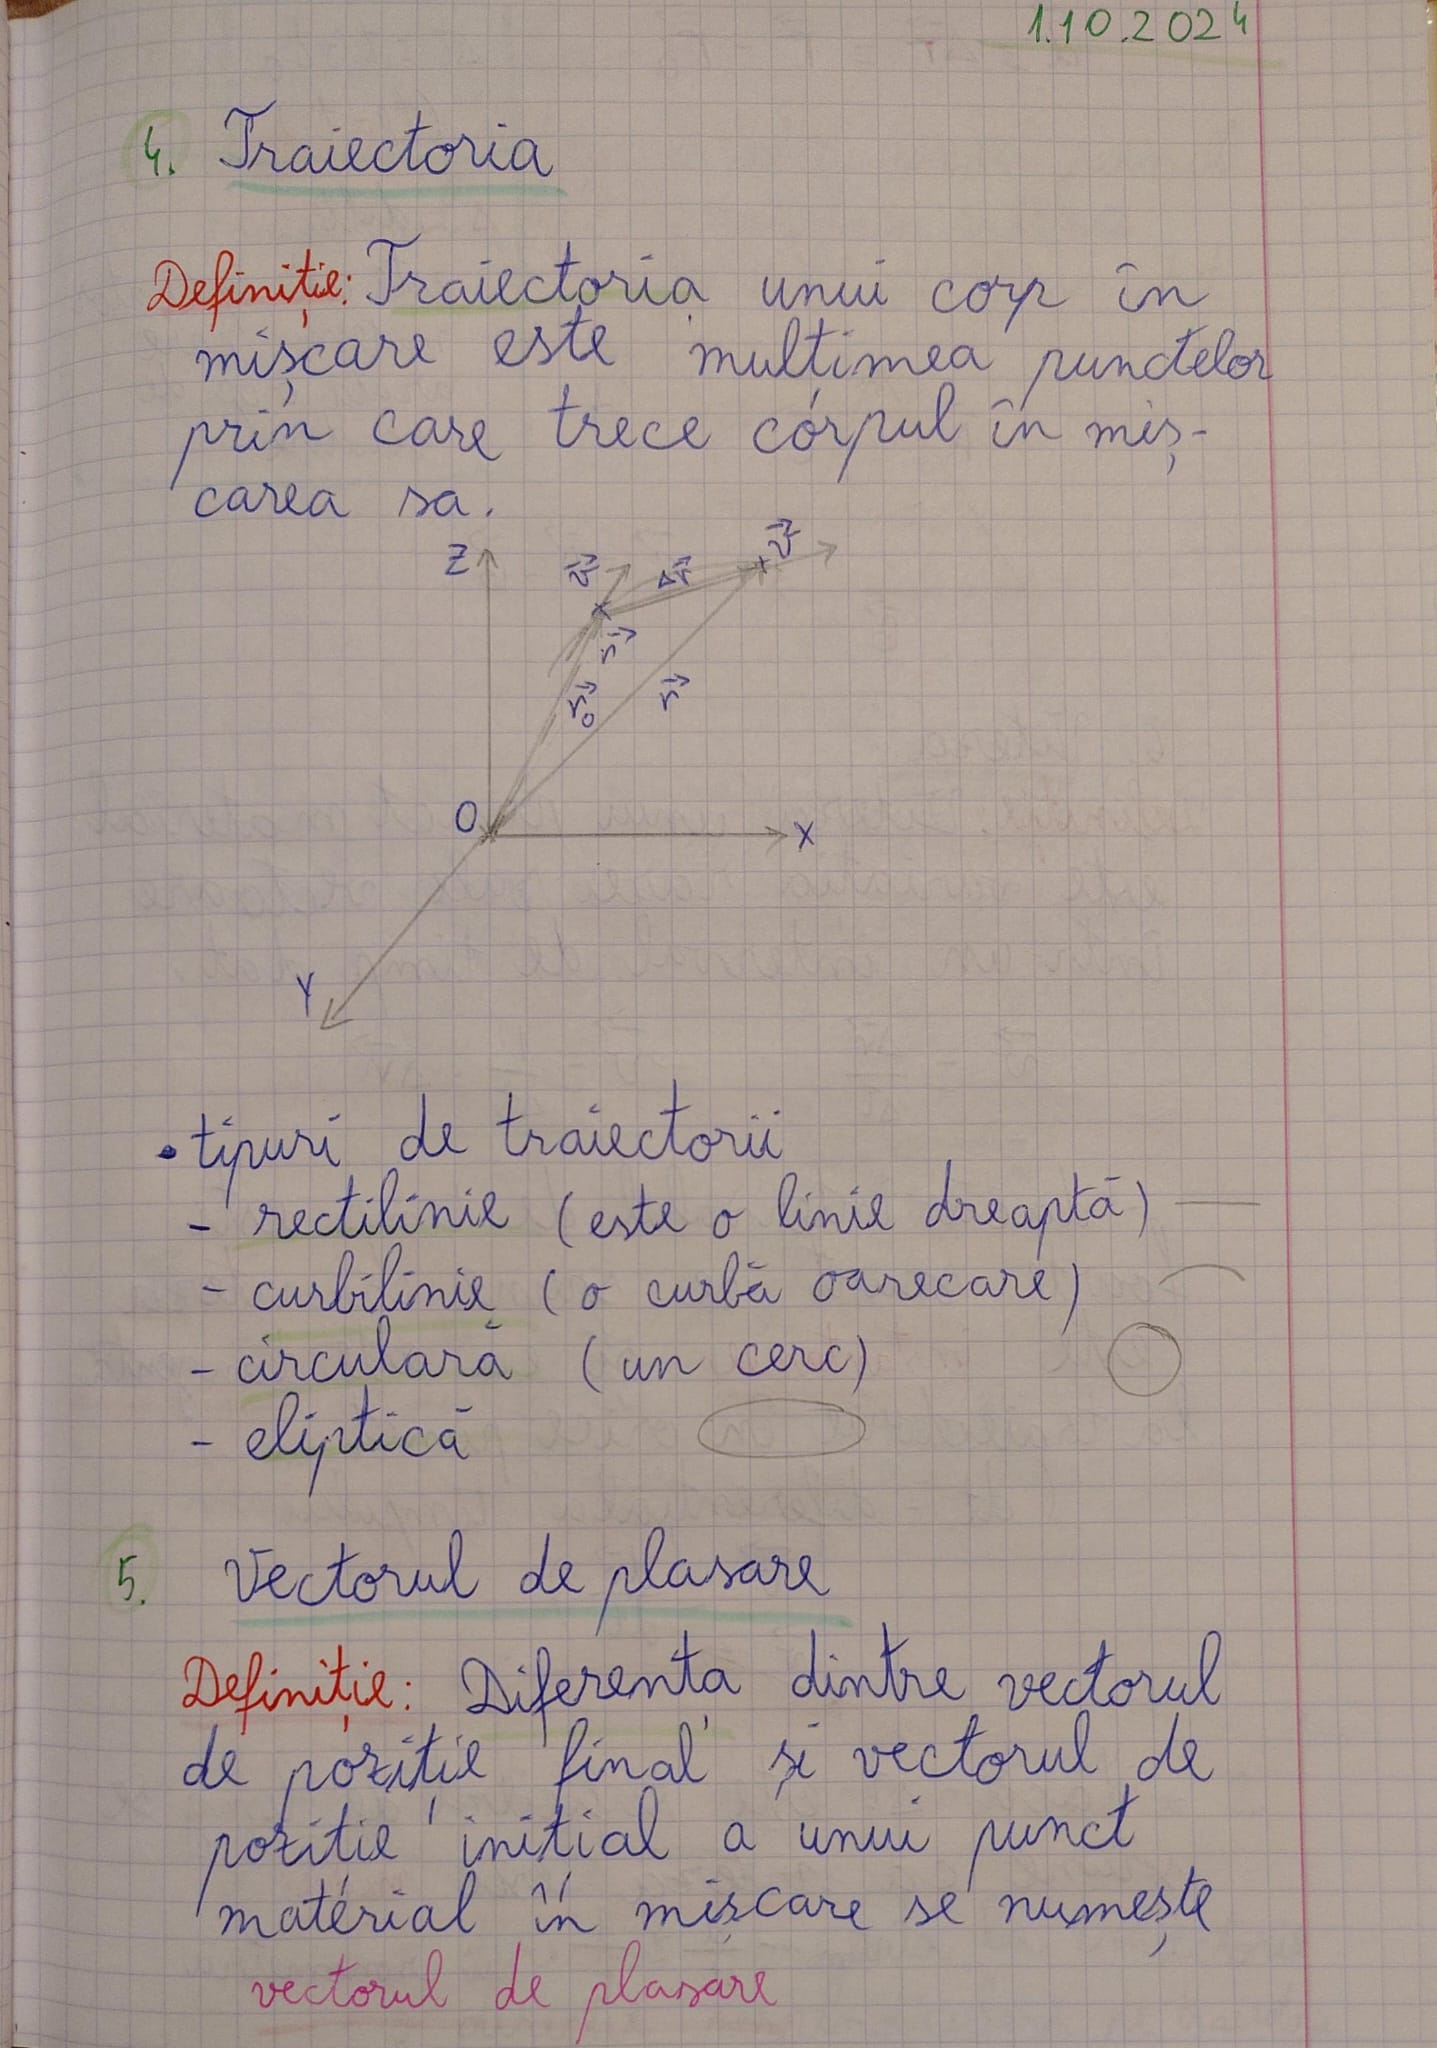 1.10.2024
4. Traiectoria
Definiție: Traiectoria unui corp în
mișcare este mulțimea punctelor
prin care trece corpul în miș-
carea sa.
Z v⃗ Δr⃗ v⃗
r⃗
r⃗₀ r⃗
O X
Y
• tipuri de traiectorii
- rectilinie (este o linie dreaptă)
- curbilinie (o curbă oarecare)
- circulară (un cerc)
- eliptică
5. Vectorul de plasare
Definiție: Diferența dintre vectorul
de poziție final și vectorul de
poziție inițial a unui punct
material în mișcare se numește
vectorul de plasare